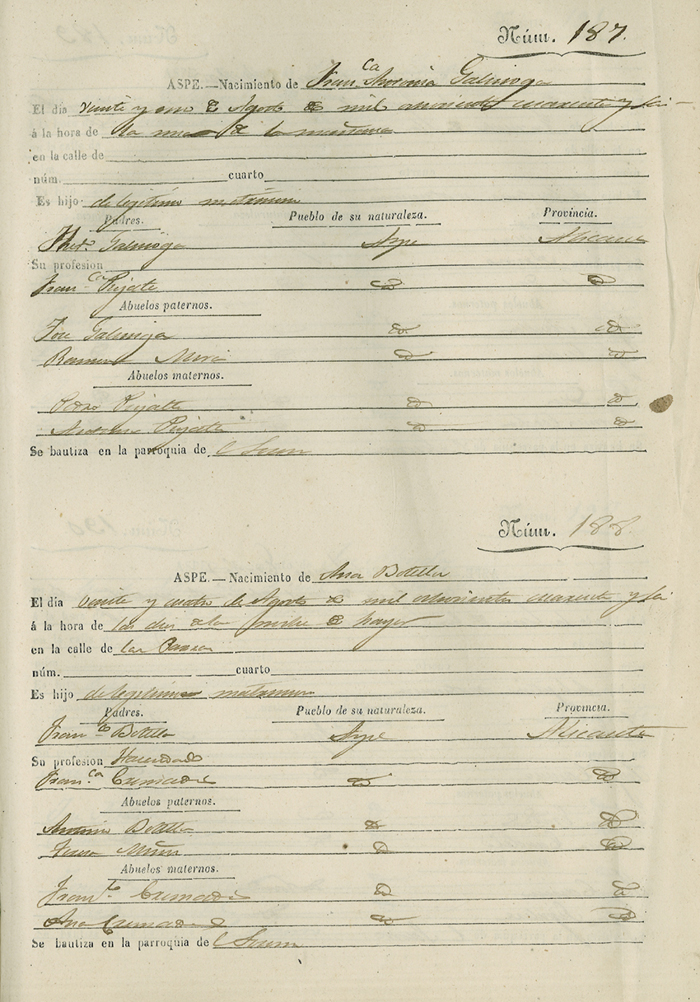 Núm. 187.
ASPE.—Nacimiento de Fran.ca Antonia Galinsoga
El día veinte y uno de Agosto de mil ochocientos cuarenta y seis
á la hora de la una de la mañana
en la calle de
núm. cuarto
Es hijo de legítimo matrimonio
Padres. Pueblo de su naturaleza. Provincia.
Galinsoga Aspe Alicante
Su profesion
Fran.ca Pujalte do do
Abuelos paternos.
José Galinsoga do do
Ramona Mira do do
Abuelos maternos.
Pedro Pujalte do do
Pujalte do do
Se bautiza en la parroquia de
Núm. 188.
ASPE.—Nacimiento de Ana Botella
El día veinte y cuatro de Agosto de mil ochocientos cuarenta y seis
á la hora de las diez de la noche de hayer
en la calle de las
núm. cuarto
Es hijo de legitimo matrimonio
Padres. Pueblo de su naturaleza. Provincia.
Fran.co Botella Aspe Alicante
Su profesion Hacendado
Fran.ca Cremades do do
Abuelos paternos.
Antonio Botella do do
Teresa Muñoz do do
Abuelos maternos.
Fran.co Cremades do do
Ana Cremades do do
Se bautiza en la parroquia de